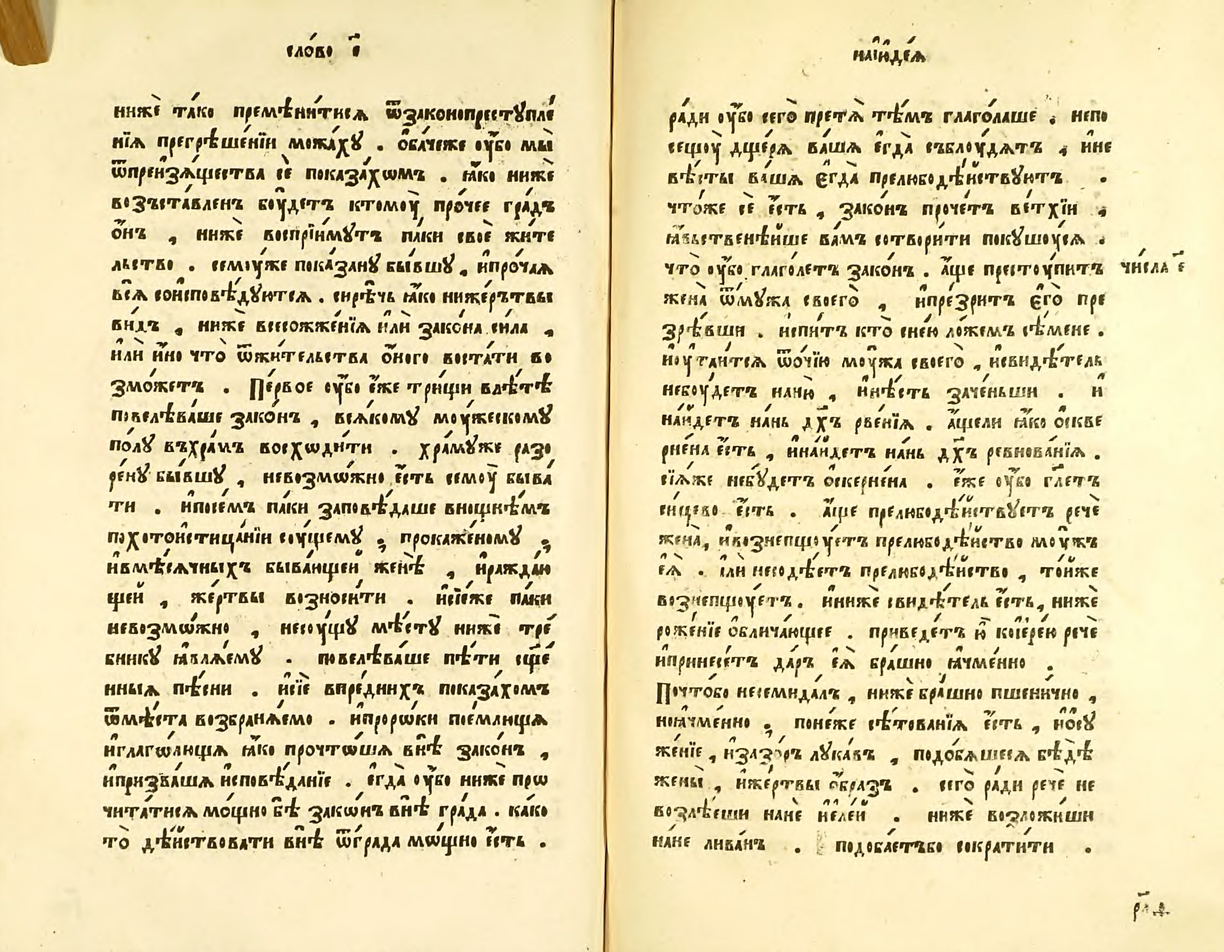 сло́во є҃
нижѐ та́ко премѣни́тисѧ ѿзаконопрестꙋпле
нїѧ прегрѣше́нїи можа́хꙋ . ѻба́чеже ᲂу҆̀бо мы̀
ѿпреизѧ́щества сѐ показа́хѡмъ . ꙗ҆́ко нижѐ
возъста́вленъ бꙋ́детъ ктомꙋ̀ про́чее гра́дъ
ѻ҆́нъ , нижѐ воспрїи́мꙋтъ па́ки своѐ жи́те
льство . семꙋ́же пока́занꙋ бы́вшꙋ , ипро́чаѧ
всѧ̀ соисповѣ́дꙋютсѧ . си́рѣчь ꙗ҆́ко нижѐртвы
ви́дъ , нижѐ всесожже́нїѧ и҆лѝ зако́на си́ла ,
и҆лѝ и҆́но что̀ ѿжи́тельства ѻ҆́ного воста́ти во
змо́жетъ . Пе́рвое ᲂу҆̀бо є҆́же три́щи влѣ́тѣ
повелѣва́ше зако́нъ , всѧ́комꙋ мꙋ́жескомꙋ
по́лꙋ въхра́мъ восхѡди́ти . хра́мꙋже разо
ре́нꙋ бы́вшꙋ , невозмѡ́жно є҆́сть семꙋ̀ быва́
ти . ипосе́мъ па́ки заповѣ́даше внѡ́щнѣмъ
похотоистица́нїи сꙋ́щемꙋ , прокаже́номꙋ ,
ивмѣ́сѧчныхъ быва́ющеи женѣ̀ , иражда́ю
щеи , же́ртвы возноси́ти . исїе́же па́ки
невозмѡ́жно , несꙋ́щꙋ мѣ́стꙋ нижѐ тре́
бникꙋ ꙗ҆влѧ́емꙋ . повелѣва́ше пѣ́ти сщ҃е
нныѧ пѣ́сни . исїѐ впре́днихъ показа́хомъ
ѿмѣ́ста возбранѧ́емо . ипроро́ки пое́млющѧ
иглаго́лющѧ ꙗ҆́ко прочто́шѧ внѣ̀ зако́нъ ,
ипризва́шѧ и҆сповѣ́данїе . є҆гда̀ ᲂу҆̀бо нижѐ прѡ
чита́тисѧ мо́щно бѣ̀ зако́нъ внѣ̀ гра́да . ка́ко
то̀ дѣ́йствовати внѣ̀ ѿгра́да мо́щно є҆́сть .
наїꙋде́ѧ
ра́ди ᲂу҆̀бо сего̀ претѧ̀ тѣ́мъ глаго́лаше . непо
сещꙋ̀ дще́рѧ ва́шѧ є҆гда̀ съблꙋ́дѧтъ , ине
вѣ́сты ва́шѧ є҆гда̀ прелюбодѣ́йствꙋютъ .
что́же сѐ є҆́сть , зако́нъ прочте́тъ ве́тхїи ,
ꙗ҆́вьственѣйше ва́мъ сотвори́ти покꙋшꙋ́сѧ .
что̀ ᲂу҆̀бо глаго́летъ зако́нъ . а҆́ще престꙋ́питъ
числа̀ є҃
жена̀ ѿмꙋ́жа своего̀ , ипре́зритъ є҆го̀ пре
зрѣ́вши . испи́тъ кто̀ сне́ю ло́жемъ сѣ́мене .
иᲂутаи́тсѧ ѿо́чїю мꙋ́жа своего̀ , исвидѣ́тель
небꙋ́детъ на́ню , инѣ́сть заче́ньши . и҆
на́йдетъ на́нь дх҃ъ рве́нїѧ . а҆́щели ꙗ҆́ко ѻскве
рне́на є҆́сть , ина́йдетъ на́нь дх҃ъ ревнова́нїѧ .
сїѧ́же небꙋ́детъ ѻскерне́на . є҆́же ᲂу҆̀бо гл҃етъ
си́цево є҆́сть . а҆́ще прелюбодѣ́йствꙋетъ речѐ
жена̀ , ивознепщꙋ́етъ прелюбодѣ́йство мꙋ́жъ
є҆ѧ̀ . и҆лѝ несодѣ́етъ прелюбодѣ́йство , то́йже
вознепщꙋ́етъ . инижѐ свидѣ́тель є҆́сть , нижѐ
роже́нїе ѻблича́ющее . приведе́тъ ю҆̀ кїере́ю речѐ
ипринесе́тъ да́ръ є҆ѧ̀ бра́шно ꙗ҆́чменно .
Почто́бо несемида́лъ , нижѐ бра́шно пшени́чно ,
ноꙗ́чменно , поне́же сѣ́тованїѧ є҆́сть , иѻсꙋ
же́нїе , изазо́ръ лꙋка́въ , подобѧ́шесѧ бѣдѣ̀
жены̀ , иже́ртвы ѻ҆́бразъ . сего̀ ра́ди речѐ не
возлѣ́еши нанѐ и҆еле́й . нижѐ возложи́ши
нанѐ лива́нъ . подоба́етъбо сократи́ти .